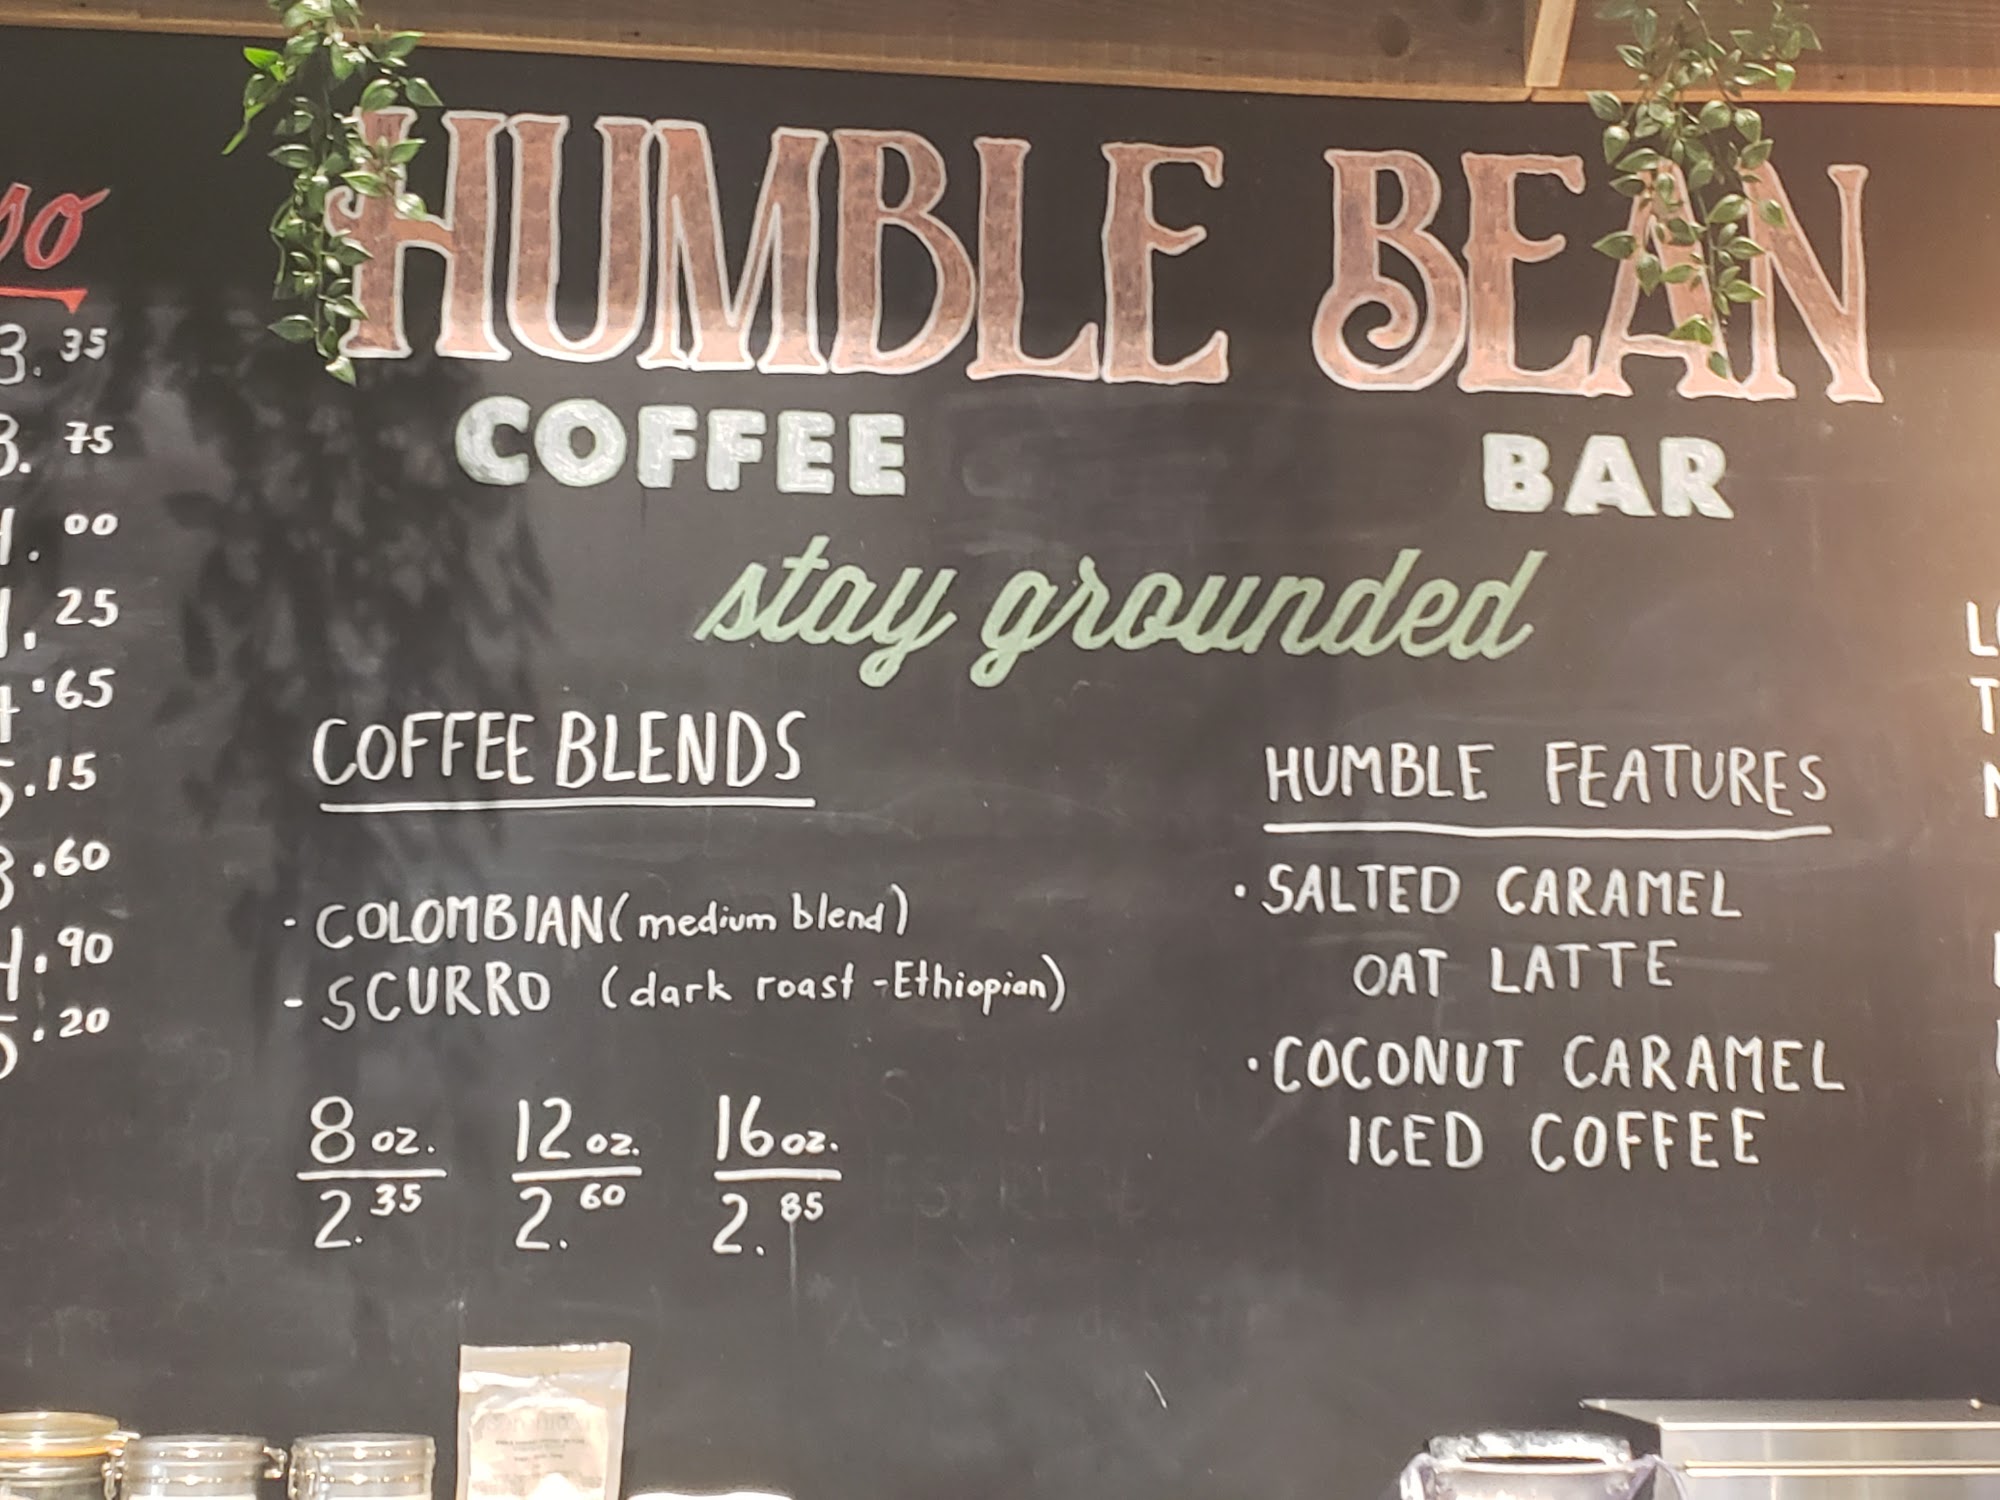 HUMBLE BEAN
COFFEE BAR
stay grounded
COFFEE BLENDS
- COLOMBIAN (medium blend)
- SCURRO (dark roast - Ethiopian)
8 oz. 12 oz. 16 oz.
2.35 2.60 2.85
HUMBLE FEATURES
• SALTED CARAMEL
OAT LATTE
• COCONUT CARAMEL
ICED COFFEE
3.35
3.75
4.00
4.25
4.65
5.15
3.60
4.90
5.20